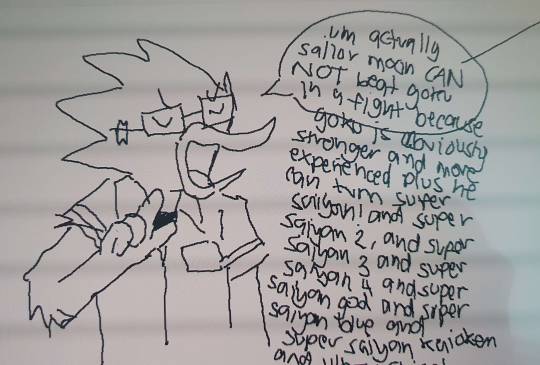 um actually
sailor moon CAN
NOT beat goku
in a fight because
goko is obviously
stronger and more
experienced plus he
can turn super
saiyan 1 and super
saiyan 2, and super
saiyan 3 and super
saiyan 4 and super
saiyan god and super
saiyan blue and
super saiyan kaioken
and